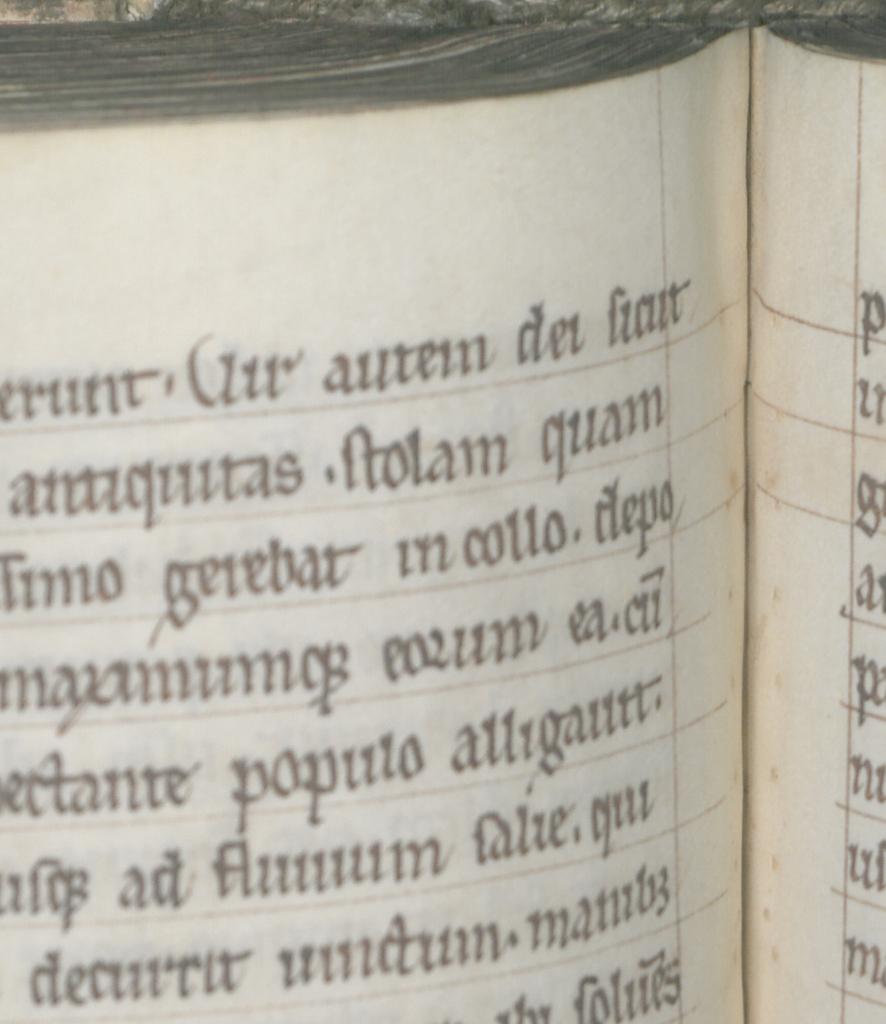 erunt. Uir autem dei sicut
antiquitas. stolam quam
simo gerebat in collo. depo
maximumq; eorum ea. cū
pectante populo alligauit.
usq; ad fluuium salie. qui
decurrit uinctum. manib;
ibi soluēs